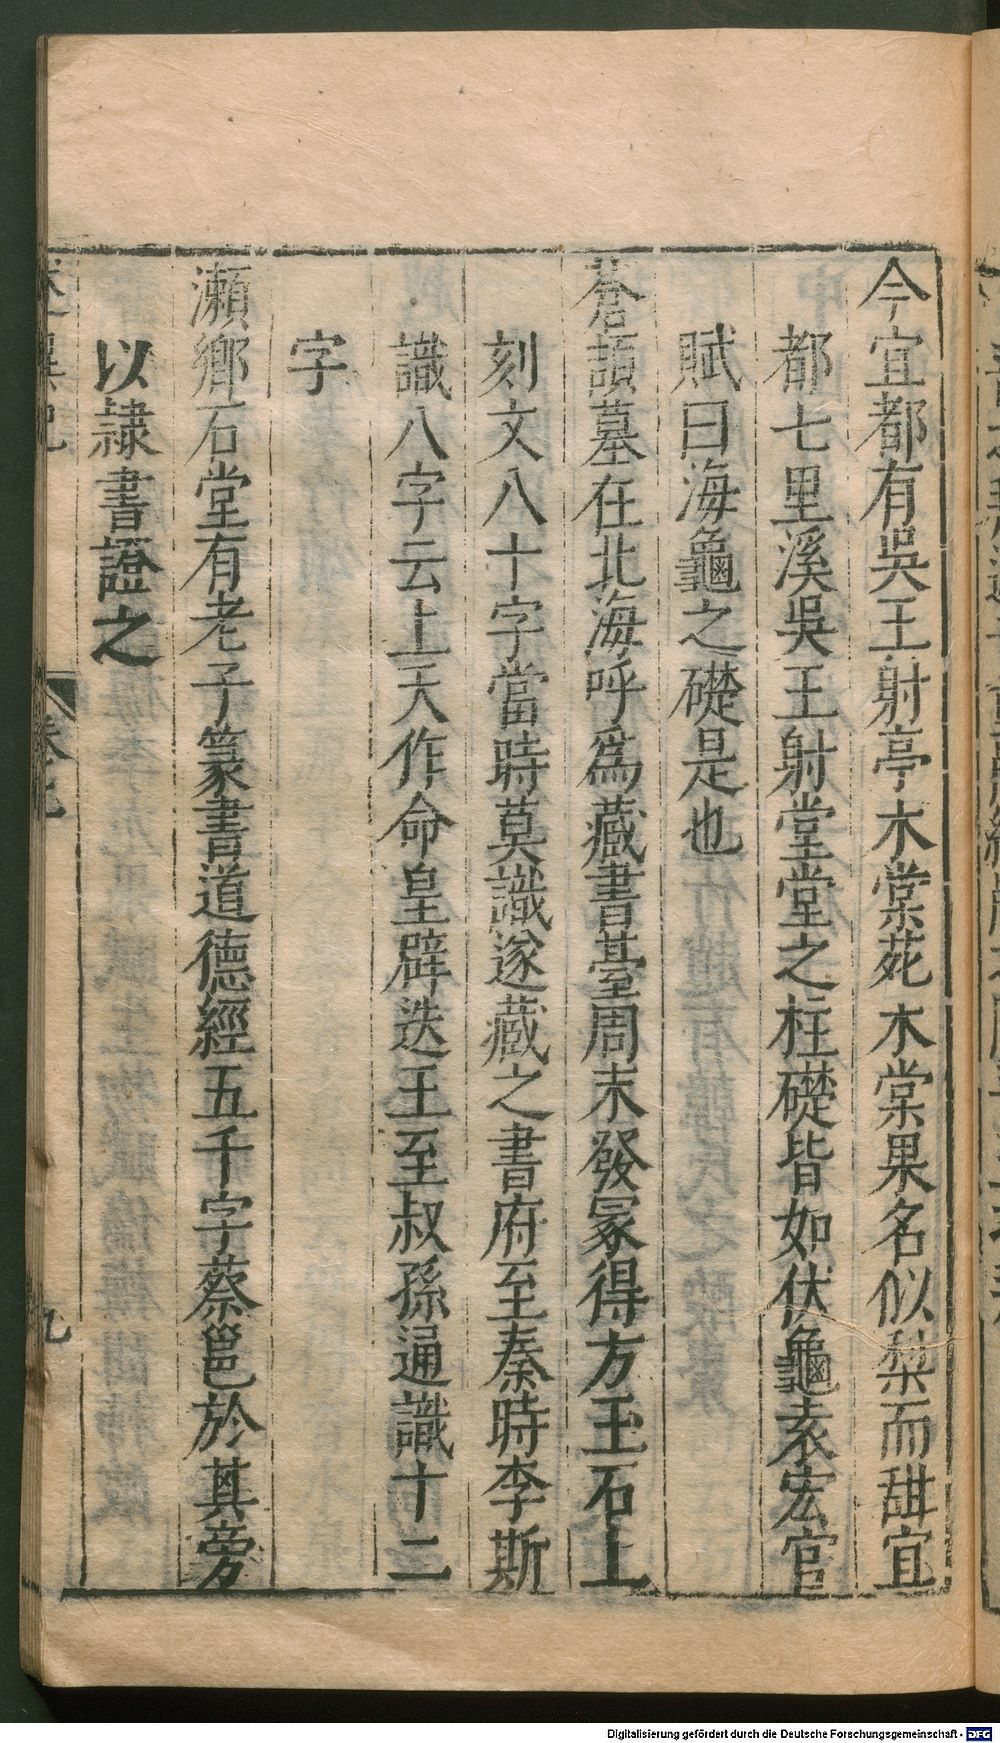 今宜都有吳王射亭木棠苑木棠果名似梨而甜宜
都七里溪吳王射堂堂之柱礎皆如伏龜袁宏官
賦曰海龜之礎是也
蒼頡墓在北海呼爲藏書臺周末發冢得方玉石上
刻文八十字當時莫識遂藏之書府至秦時李斯
識八字云上天作命皇辟迭王至叔孫通識十二
字
瀨鄉石堂有老子篆書道德經五千字蔡邕於其旁
以隷書證之
九
Digitalisierung gefördert durch die Deutsche Forschungsgemeinschaft - DFG